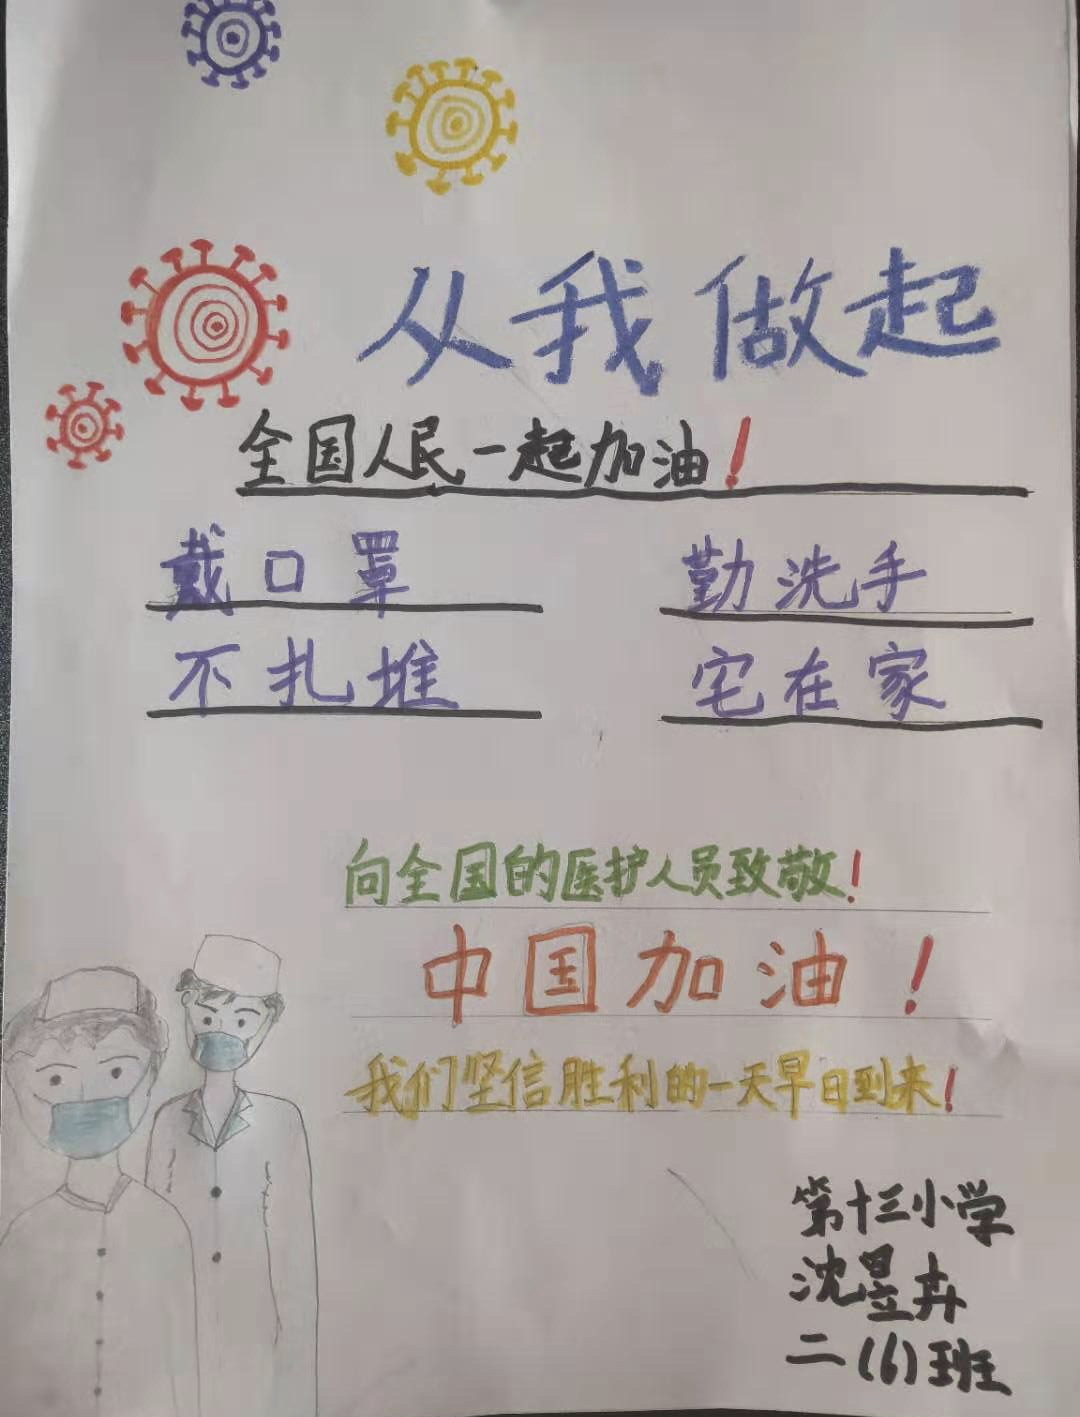 从我做起
全国人民一起加油！
戴口罩 勤洗手
不扎堆 宅在家
向全国的医护人员致敬！
中国加油！
我们坚信胜利的一天早日到来！
第十三小学
沈昱卉
二(6)班